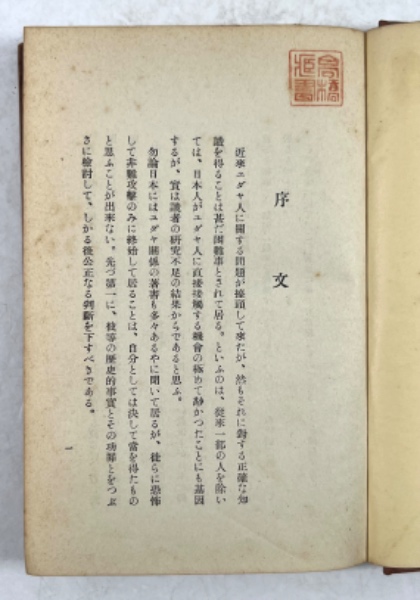 序文
近來ユダヤ人に關する問題が擡頭して來たが、然もそれに對する正確な知
識を得ることは甚だ困難事とされて居る。といふのは、從來一部の人を除い
ては、日本人がユダヤ人に直接接觸する機會の極めて尠かつたことにも基因
するが、實は識者の研究不足の結果からであると思ふ。
勿論日本にはユダヤ關係の著書も多々あるやに聞いて居るが、徒らに恐怖
して非難攻擊のみに終始して居ることは、自分としては決して當を得たもの
と思ふことが出來ない。先づ第一に、彼等の歷史的事實とその功罪とをつぶ
さに檢討して、しかる後公正なる判斷を下すべきである。
一